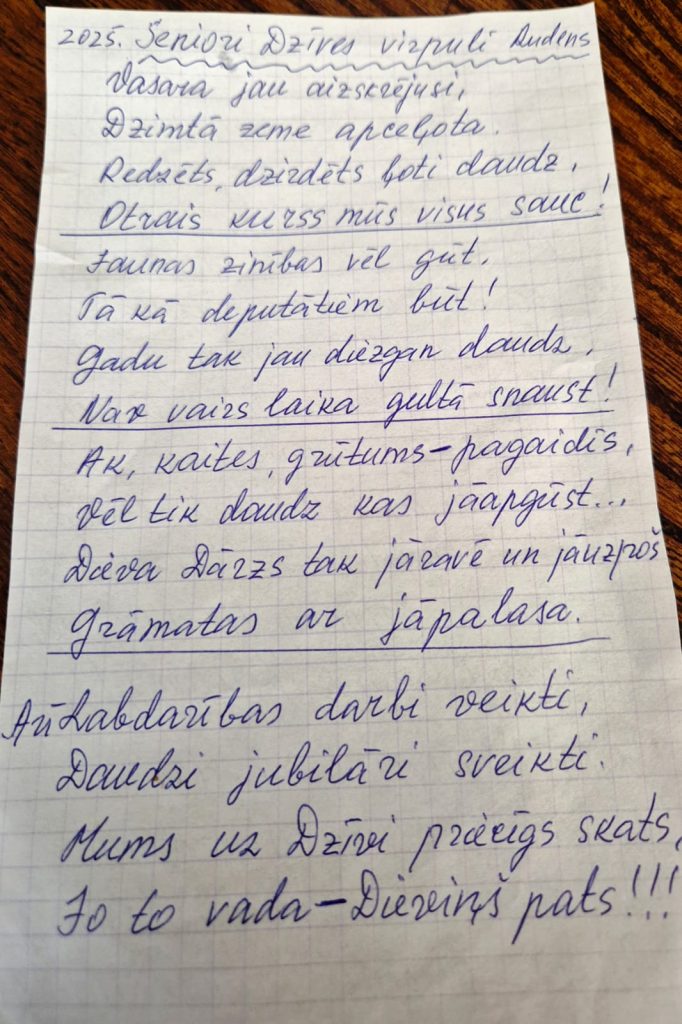 2025. Šeniori Dzīves virpulī Rudens
Vasara jau aizskrējusi,
Dzimtā zeme apceļota.
Redzēts, dzirdēts ļoti daudz,
Otrais kurss mūs visus sauc!
Jaunas zinības vēl gūt,
Tā kā deputātiem būt!
Gadu tak jau diezgan daudz,
Nav vairs laika gultā snaust!
Ak, kaites, grūtums-pagaidīs,
Vēl tik daudz kas jāapgūst...
Dieva Dārzs tak jāravē un jāuzpoš
Grāmatas ar jāpalasa.
Arī Labdarības darbi veikti,
Daudzi jubilāri sveikti.
Mums uz Dzīvi priecīgs skats,
Jo to vada-Dieviņš pats!!!